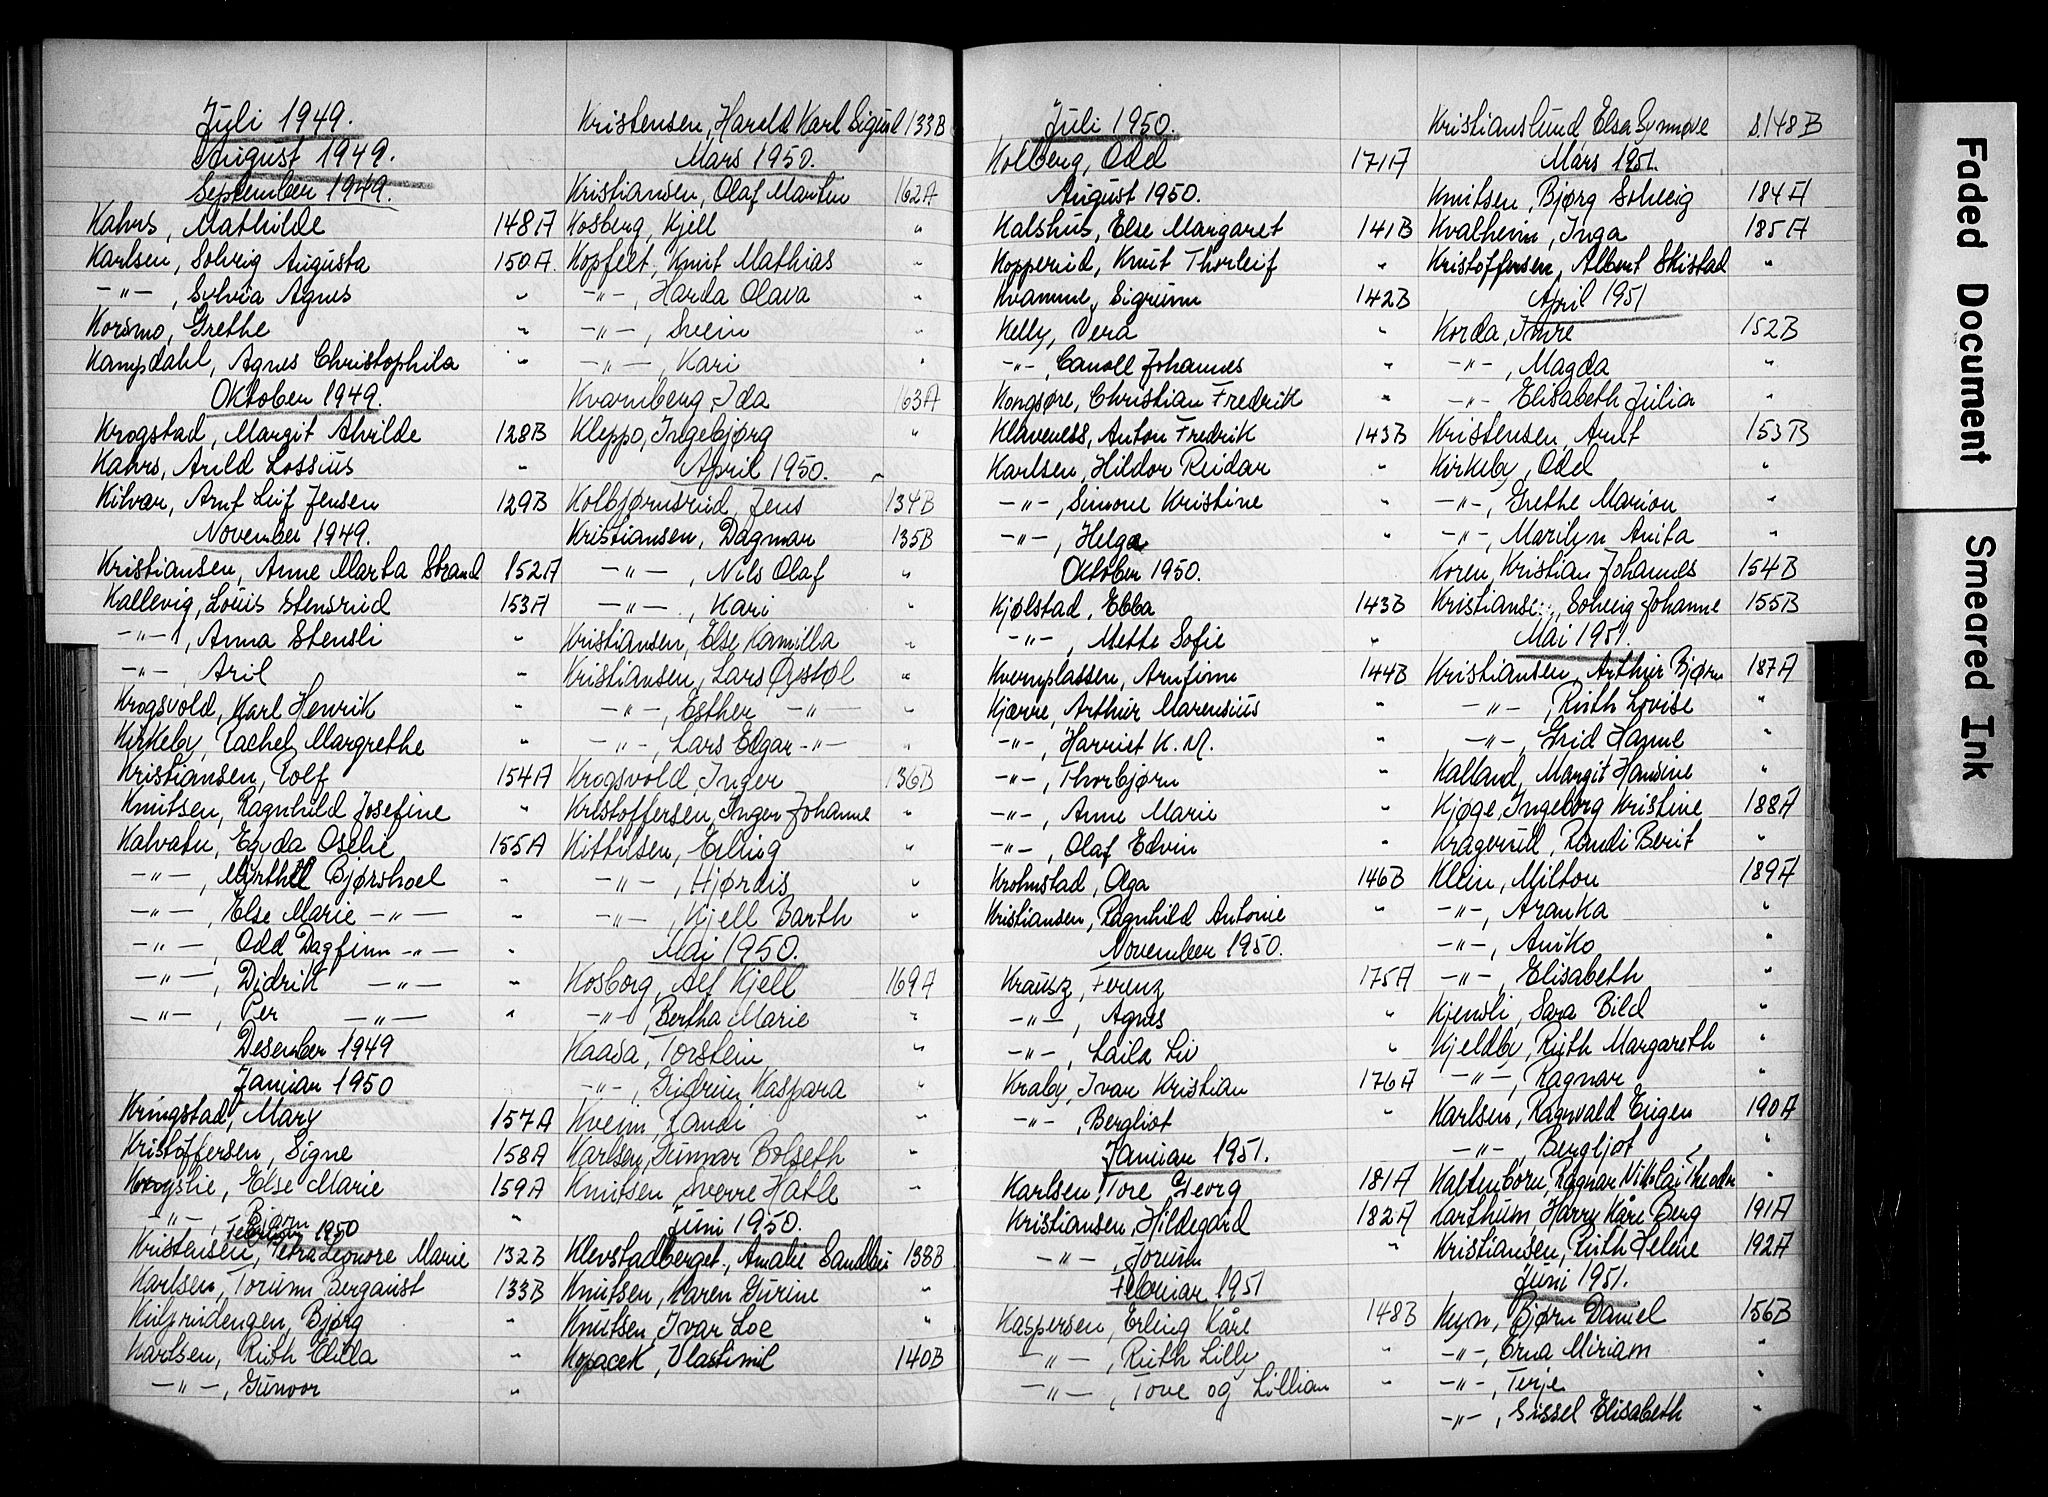 Juli 1949.
August 1949.
September 1949.
Kahrs, Mathilde 148A
Karlsen, Solveig Augusta 150A.
—"—, Sylvia Agnes "
Korsmo, Grethe "
Kampdahl, Agnes Christophila "
Oktober 1949.
Krogstad, Margit Alvilde 128B
Kahrs, Arild Lossius "
Kilvær, Arnt Leif Jensen 129B
November 1949.
Kristiansen, Anne Marta Strand 152A
Kallevig, Louis Stensrud 153A
—"—, Anna Stensli "
—"—, Aril "
Krogsvold, Karl Henrik "
Kirkeby, Rachel Margrethe "
Kristiansen, Rolf 154A
Knutsen, Ragnhild Josefine "
Kalvatn, Egyda Oselie 155A
—"—, Bjørshoel "
—"—, Else Marie —"— "
—"—, Odd Dagfinn —"— "
—"—, Didrik —"— "
—"—, Per —"— "
Desember 1949
Januar 1950
Kringstad, Mary 157A
Kristoffersen, Signe 158A
Else Marie 159A
—"—, Bjørn "
Februar 1950
Kristensen, Petra Leonore Marie 132B
Karlsen, Torunn Bergquist 133B
Kulprudengen, Bjørg "
Karlsen, Ruth Elilla "
—"—, Gunvor "
Kristensen, Harald Karl Sigurd 133B
Mars 1950.
Kristiansen, Olaf Martin 162A
Kosberg, Kjell "
Kopfelt, Knut Mathias "
—"—, Harda Olava "
—"—, Svein "
—"—, Kari "
Kvarnberg, Ida 163A
Kleppo, Ingebjørg "
April 1950.
Kolbjørnsrud, Jens 134B
Kristiansen, Dagmar 135B
—"—, Nils Olaf "
—"—, Kari "
Kristiansen, Else Kamilla "
Kristiansen, Lars Øystøl "
—"—, Esther —"— "
—"—, Lars Edgar —"— "
Krogsvold, Inger 136B
Kristoffersen, Inger Johanne "
Kittilsen, Erling "
—"—, Hjørdis "
—"—, Kjell Barth "
Mai 1950.
Kosborg, Alf Kjell 169A
—"—, Bertha Marie "
Kaasa, Torstein "
—"—, Gudrun Kaspara "
Kveim, Randi "
Karlsen, Gunnar Bolseth "
Knutsen, Sverre Hatle "
Juni 1950.
Klevstadberget, Amalie Sandbu 138B
Knutsen, Karen Gurine "
Knutsen, Ivar Loe "
Kopacek, Vlastimil 140B
Juli 1950.
Kolberg, Odd 171A
August 1950.
Kalshus, Else Margaret 141B
Kopperud, Knut Thorleif "
Kvamme, Sigrunn 142B
Kelly, Vera "
—"—, Canoll Johannes "
Kongsøre, Christian Fredrik "
Klaveness, Anton Fredrik 143B
Karlsen, Hildor Reidar "
—"—, Simone Kristine "
—"—, Helga "
Oktober 1950.
Kjølstad, Ebba 143B
—"—, Mette Sofie "
Kvernplassen, Arnfinn 144B
Kjærre, Arthur Marensius "
—"—, Harriet K. M. "
—"—, Thorbjørn "
—"—, Anne Marie "
—"—, Olaf Edvin "
Krohnstad, Olga 146B
Kristiansen, Ragnhild Antonie "
November 1950.
Krausz, Ferenz 175A
—"—, Agnes "
—"—, Laila Liv "
Kraby, Ivar Kristian 176A
—"—, Bergliot "
Januar 1951.
Karlsen, Tore Georg 181A
Kristiansen, Hildegard 182A
—"—, Jorunn "
Februar 1951
Kaspersen, Erling Kåre 148B
—"—, Ruth Lilly "
—"—, Tove og Lillian "
Kristianslund Elsa Synnøve S.148B
Mars 1951.
Knutsen, Bjørg Solveig 184A
Kvalheim, Inga 185A
Kristoffersen, Albert Skistad "
April 1951
Korda, Imre 152B
—"—, Magda "
—"—, Elisabeth Julia "
Kristensen, Arnt 153B
Kirkeby, Odd "
—"—, Grethe Marion "
—"—, Marilyn Anita "
Koren, Kristian Johannes 154B
Solveig Johanne 155B
Mai 1951.
Kristiansen, Arthur Bjørn 187A
—"—, Ruth Lovise "
—"—, Grid Hanne "
Kalland, Margit Hansine "
Kjøge, Ingeborg Kristine 188A
Kragerud, Randi Berit "
Klein, Milton 189A
—"—, Aranka "
—"—, Aniko "
—"—, Elisabeth "
Kjensli, Sara Bild "
Kjeldby, Ruth Margareth "
—"—, Ragnar "
Karlsen, Ragnvald Eugen 190A
—"—, Bergljot "
Kaltenborn, Ragnar Nikolai Theodor "
Karthum, Harry Kåre Berg 191A
Kristiansen, Ruth Helene 192A
Juni 1951.
Kuyn, Bjørn Daniel 156B
—"—, Erna Miriam "
—"—, Terje "
—"—, Sissel Elisabeth "
Faded Document
Smeared Ink